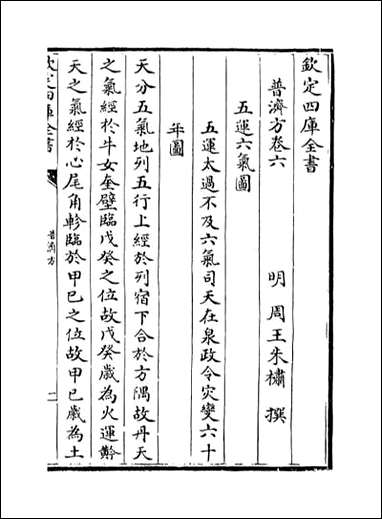 欽定四庫全書
普濟方卷六
明 周王朱橚 撰
五運六氣圖
五運太過不及六氣司天在泉政令災變六十
年圖
天分五氣地列五行上經於列宿下合於方隅故丹天
之氣經於牛女奎壁臨戊癸之位故戊癸歲為火運黅
天之氣經於心尾角軫臨於甲巳之位故甲巳歲為土
欽定四庫全書
普濟方